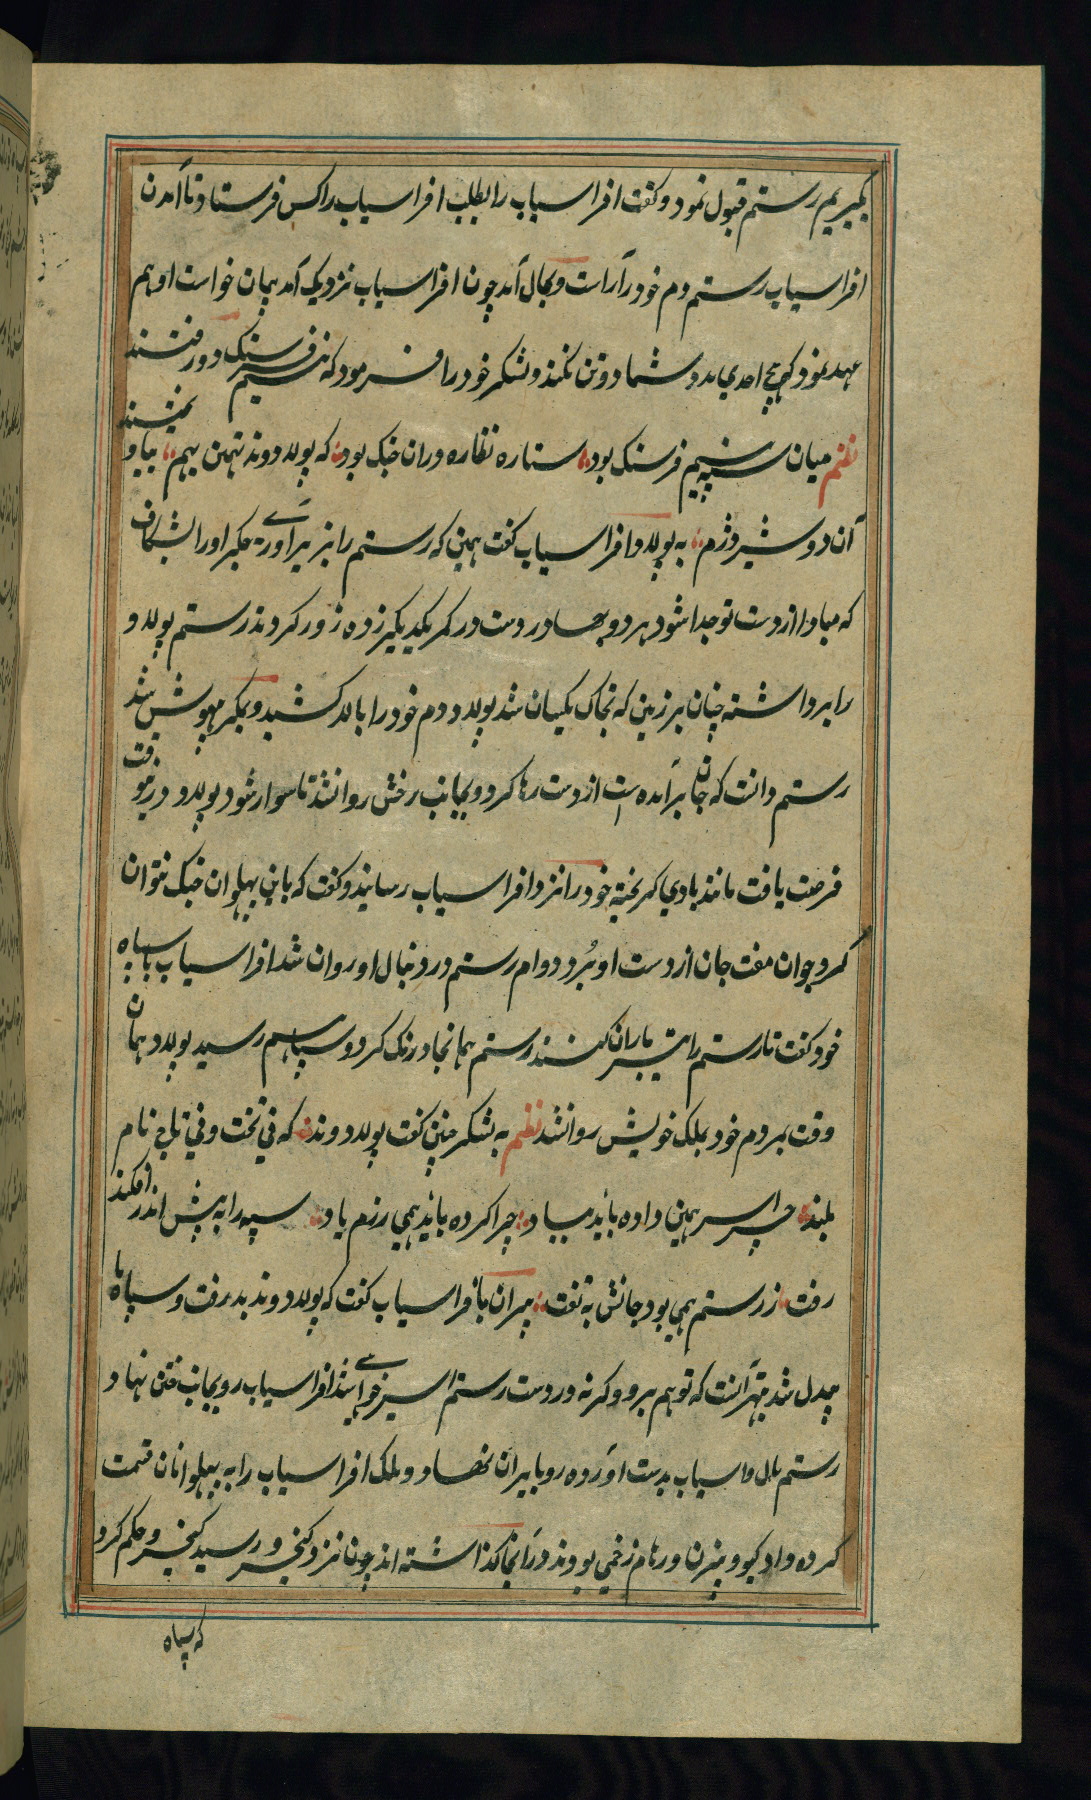 بگیریم رستم قبول نمود و گفت افراسیاب را بطلب افراسیاب را کس فرستاد تا آمدن
افراسیاب رستم دم خود را آراست و بحال آمد چون افراسیاب نزدیک آمد پیمان خواست او هم
عهد نمود که هیچ احدی مدد شما دو تن نکند و لشکر خود را فرمود که نیم فرسنگ دور رفتند
نظم میان سپه نیم فرسنگ بود ستاره نظاره دران جنک بود که پولادوند تهمتن بهم
آن دو شیر دژم به پولادوند افراسیاب گفت همین که رستم را بزیر آوری جگر او را بشکاف
که مبادا از دست تو جدا شود هر دو بهادر دست در کمر یکدیگر زده زور کردند رستم پولاد و
را برداشته چنان بر زمین که بخاک یکسان شد پولاد و دم خود را بالا کشید و بمکر بیهوش شد
رستم دانست که جان برآمده است از دست رها کرد و بجانب رخش روانشد تا سوار شود پولاد و درین وقت
فرصت یافت مانند بادی گریخته خود را نزد افراسیاب رسانید و گفت که باین پهلوان جنک نتوان
کرد چون مفت جان از دست او برده ام رستم در دنبال او روان شد افراسیاب با سپاه
خود گفت تا رستم را تیر باران کنند رستم همانجا درنک کرد و سپاه هم رسید پولاد و همان
وقت بمردم خود بملک خویش روانشد نظم به لشکر چنین گفت پولادوند که نی تخت و نی تاج نام
بلند چرا سر همی داده باید بباد چرا کرده باید همی رزم یاد سپه را به پیش اندر افکند
رفت ز رستم همی بود جانش به تفت پیران با افراسیاب گفت که پولادوند بدر رفت و سپاه ما
بیدل شد بهتر آنست که تو هم برو وگرنه در دست رستم اسیر خواهی شد افراسیاب رو بجانب ختن نهاد
رستم مال و اسباب بدست آورده رو بایران نهاد و ملک افراسیاب را به پهلوانان قسمت
کرده داد گیو و بیژن و رهام زخمی بودند در آنجا گذاشته اند چون نزد کیخسرو رسید کیخسرو حکم کرد
که سپاه